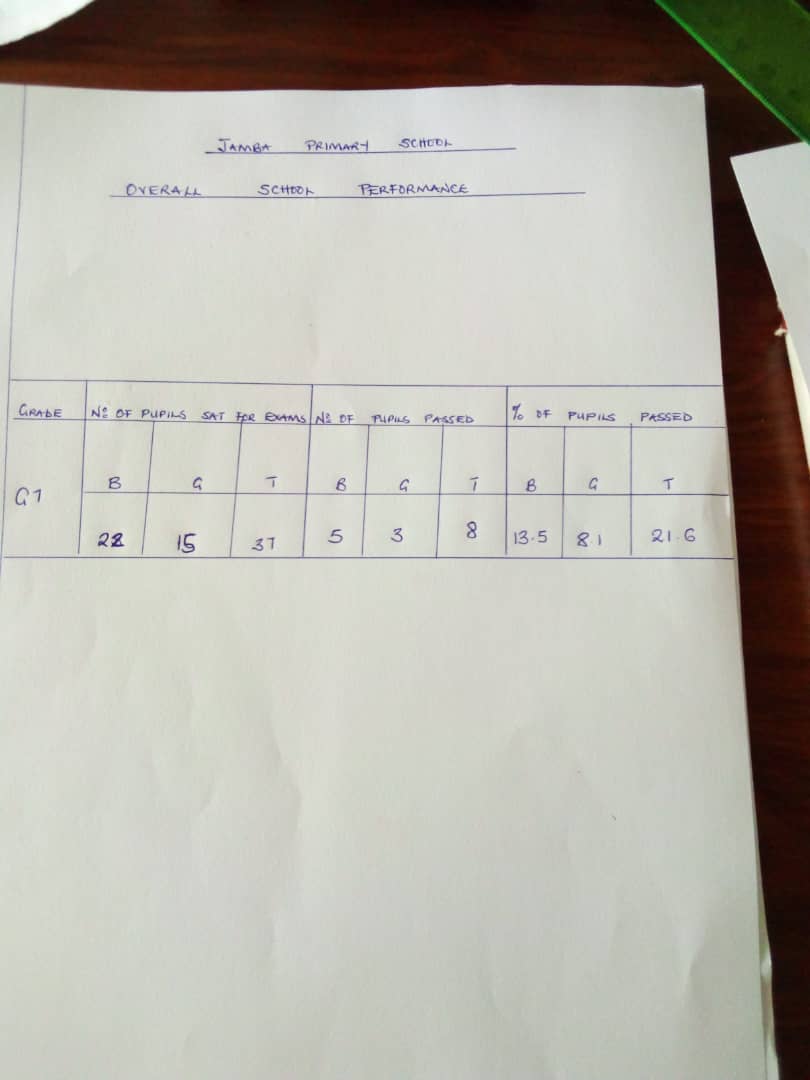 JAMBA PRIMARY SCHOOL
OVERALL SCHOOL PERFORMANCE
GRADE Nº OF PUPILS SAT FOR EXAMS Nº OF PUPILS PASSED % OF PUPILS PASSED
B G T B G T B G T
G7
22 15 37 5 3 8 13.5 8.1 21.6